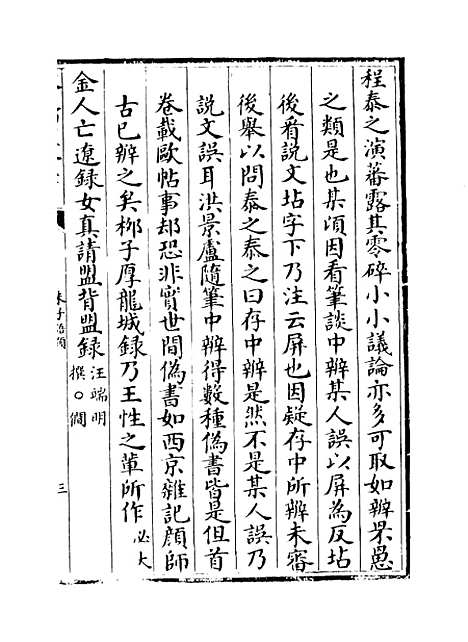 程泰之演蕃露其零碎小小議論亦多可取如辨罘罳
之類是也某頃因看筆談中辨某人誤以屏為反坫
後看説文坫字下乃注云屏也因疑存中所辨未審
後舉以問泰之泰之曰存中辨是然不是某人誤乃
説文誤耳洪景盧隨筆中辨得數種偽書皆是但首
卷載歐帖事却恐非實世間偽書如西京雜記顔師
古已辨之矣栁子厚龍城録乃王性之輩所作 必大
金人亡遼録女真請盟背盟録 汪端明
撰〇僩
朱子語類
三